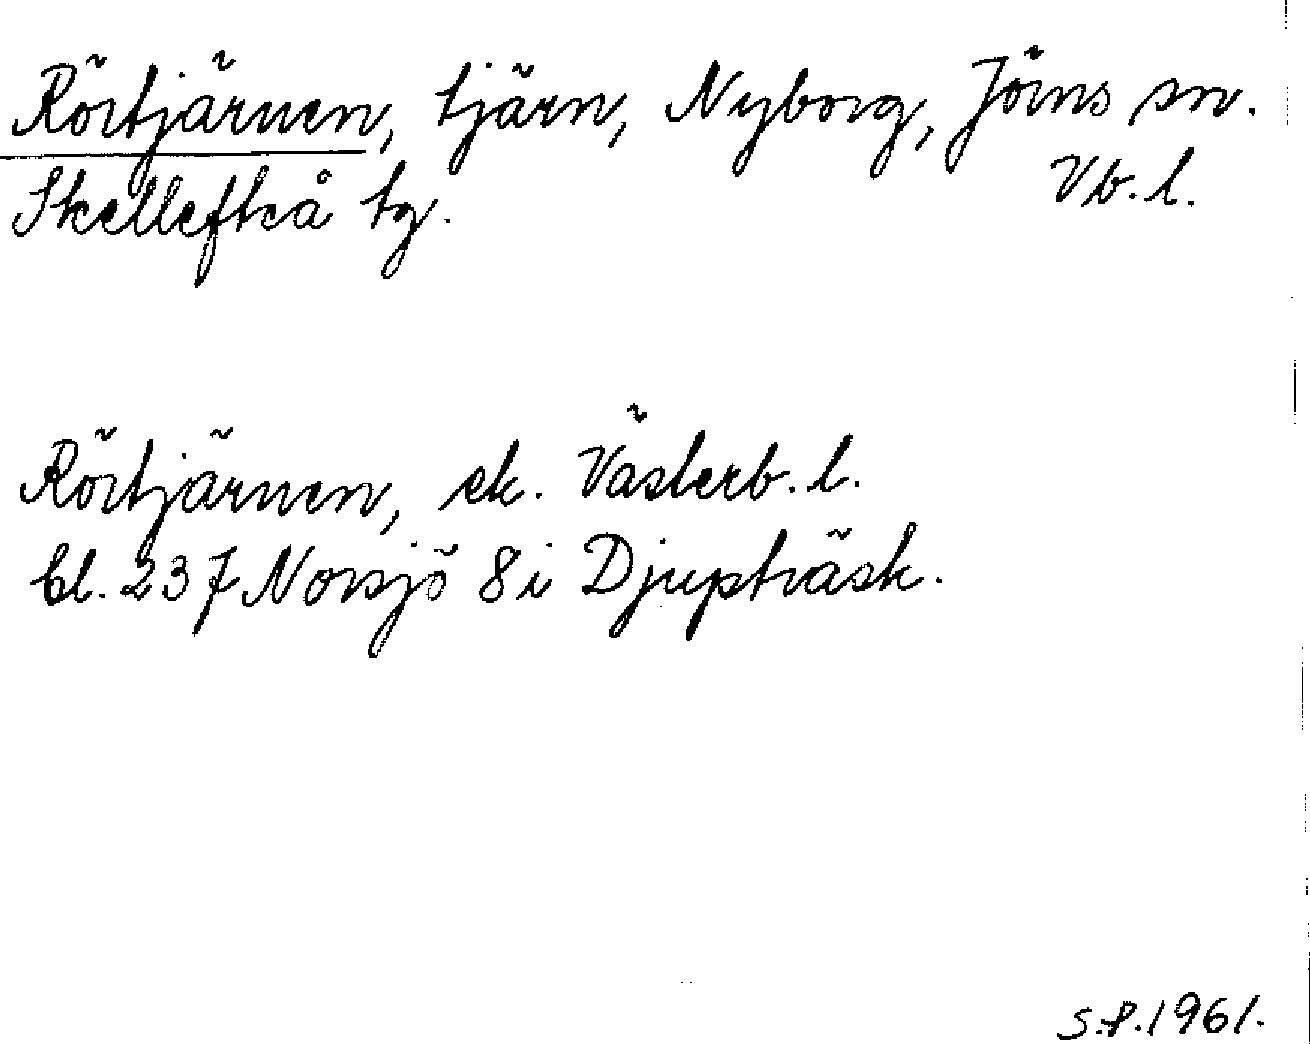 Rörtjärnen, tjärn, Nyborg, Jörns sn.
Skellefteå tg. Vb. l.
Rörtjärnen, ek. Västerb. l.
bl. 237 Norsjö 8 i Djupträsk.
S.P. 1961.